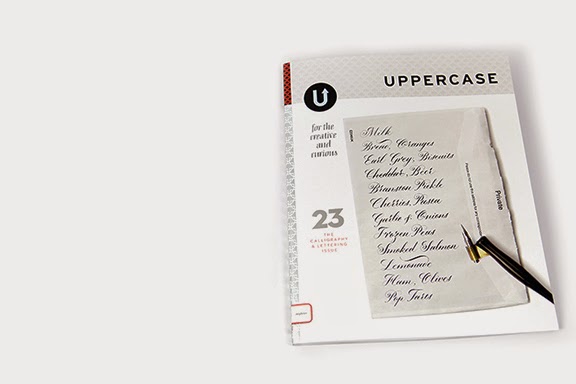 UPPERCASE
U
for the
creative
and
curious
23
THE
CALLIGRAPHY
& LETTERING
ISSUE
Milk
Brine, Oranges
Earl Grey, Biscuits
Cheddar, Beer
Branston Pickle
Cherries, Pasta
Garlic & Onions
Frozen Peas
Smoked Salmon
Lemonade
Ham, Olives
Pop Tarts
Private